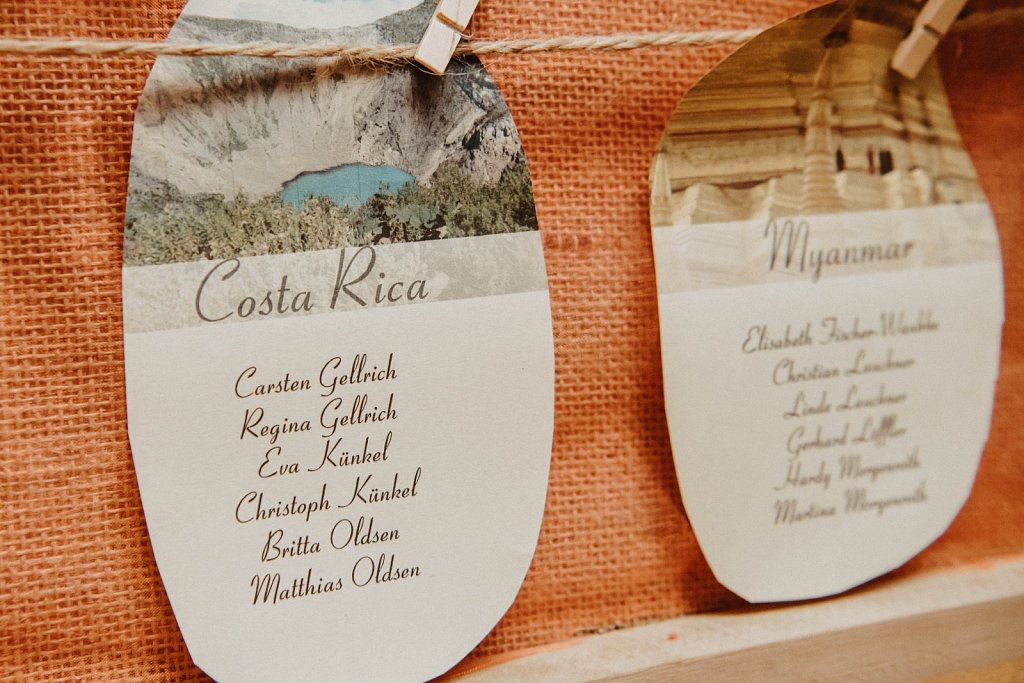 Costa Rica
Carsten Gellrich
Regina Gellrich
Eva Künkel
Christoph Künkel
Britta Oldsen
Matthias Oldsen
Myanmar
Elisabeth Fischer-
Christian Lauckner
Linde Lauckner
Gerhard Löffler
Hardy Morgenroth
Martina Morgenroth